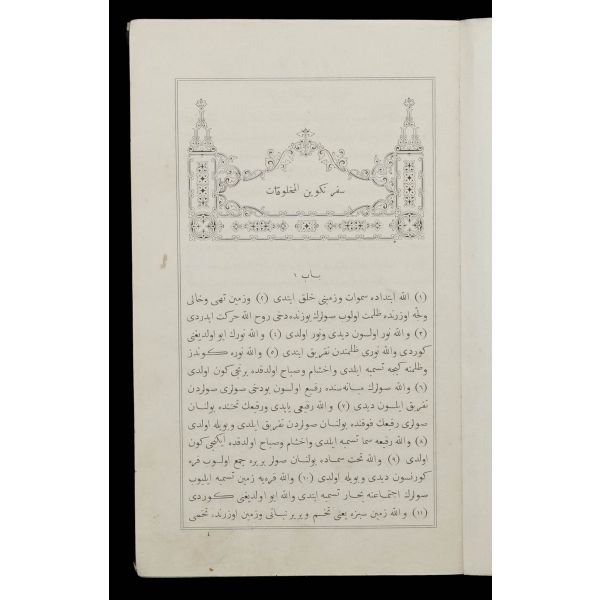 سفر تكوين المخلوقات
باب ١
(١) الله ابتداده سموات و زمينى خلق ايتدى (٢) و زمين تهى و خالى
و لجه اوزرنده ظلمت اولوب صولرك يوزنده دخى روح الله حركت ايدردى
(٣) و الله نور اولسون ديدى و نور اولدى (٤) و الله نورك ايو اولديغنى
كوردى و الله نورى ظلمتدن تفريق ايتدى (٥) و الله نوره كوندز
و ظلمته كيجه تسميه ايلدى و اخشام و صباح اولدقده برنجى كون اولدى
(٦) و الله صولرك ميانه سنده رقيع اولسون بو دخى صولرى صولردن
تفريق ايلسون ديدى (٧) و الله رقيعى ياپدى و رقيعك تحتنده بولنان
صولرى رقيعك فوقنده بولنان صولردن تفريق ايلدى و بويله اولدى
(٨) و الله رقيعه سما تسميه ايلدى و اخشام و صباح اولدقده ايكنجى كون
اولدى (٩) و الله تحت سماده بولنان صولر بر يره جمع اولوب قره
كورنسون ديدى و بويله اولدى (١٠) و الله قره يه زمين تسميه ايليوب
صولرك اجتماعنه بحار تسميه ايتدى و الله ايو اولديغنى كوردى
(١١) و الله زمين سبزه يعنى تخم ويرير نباتى و زمين اوزرنده تخمى